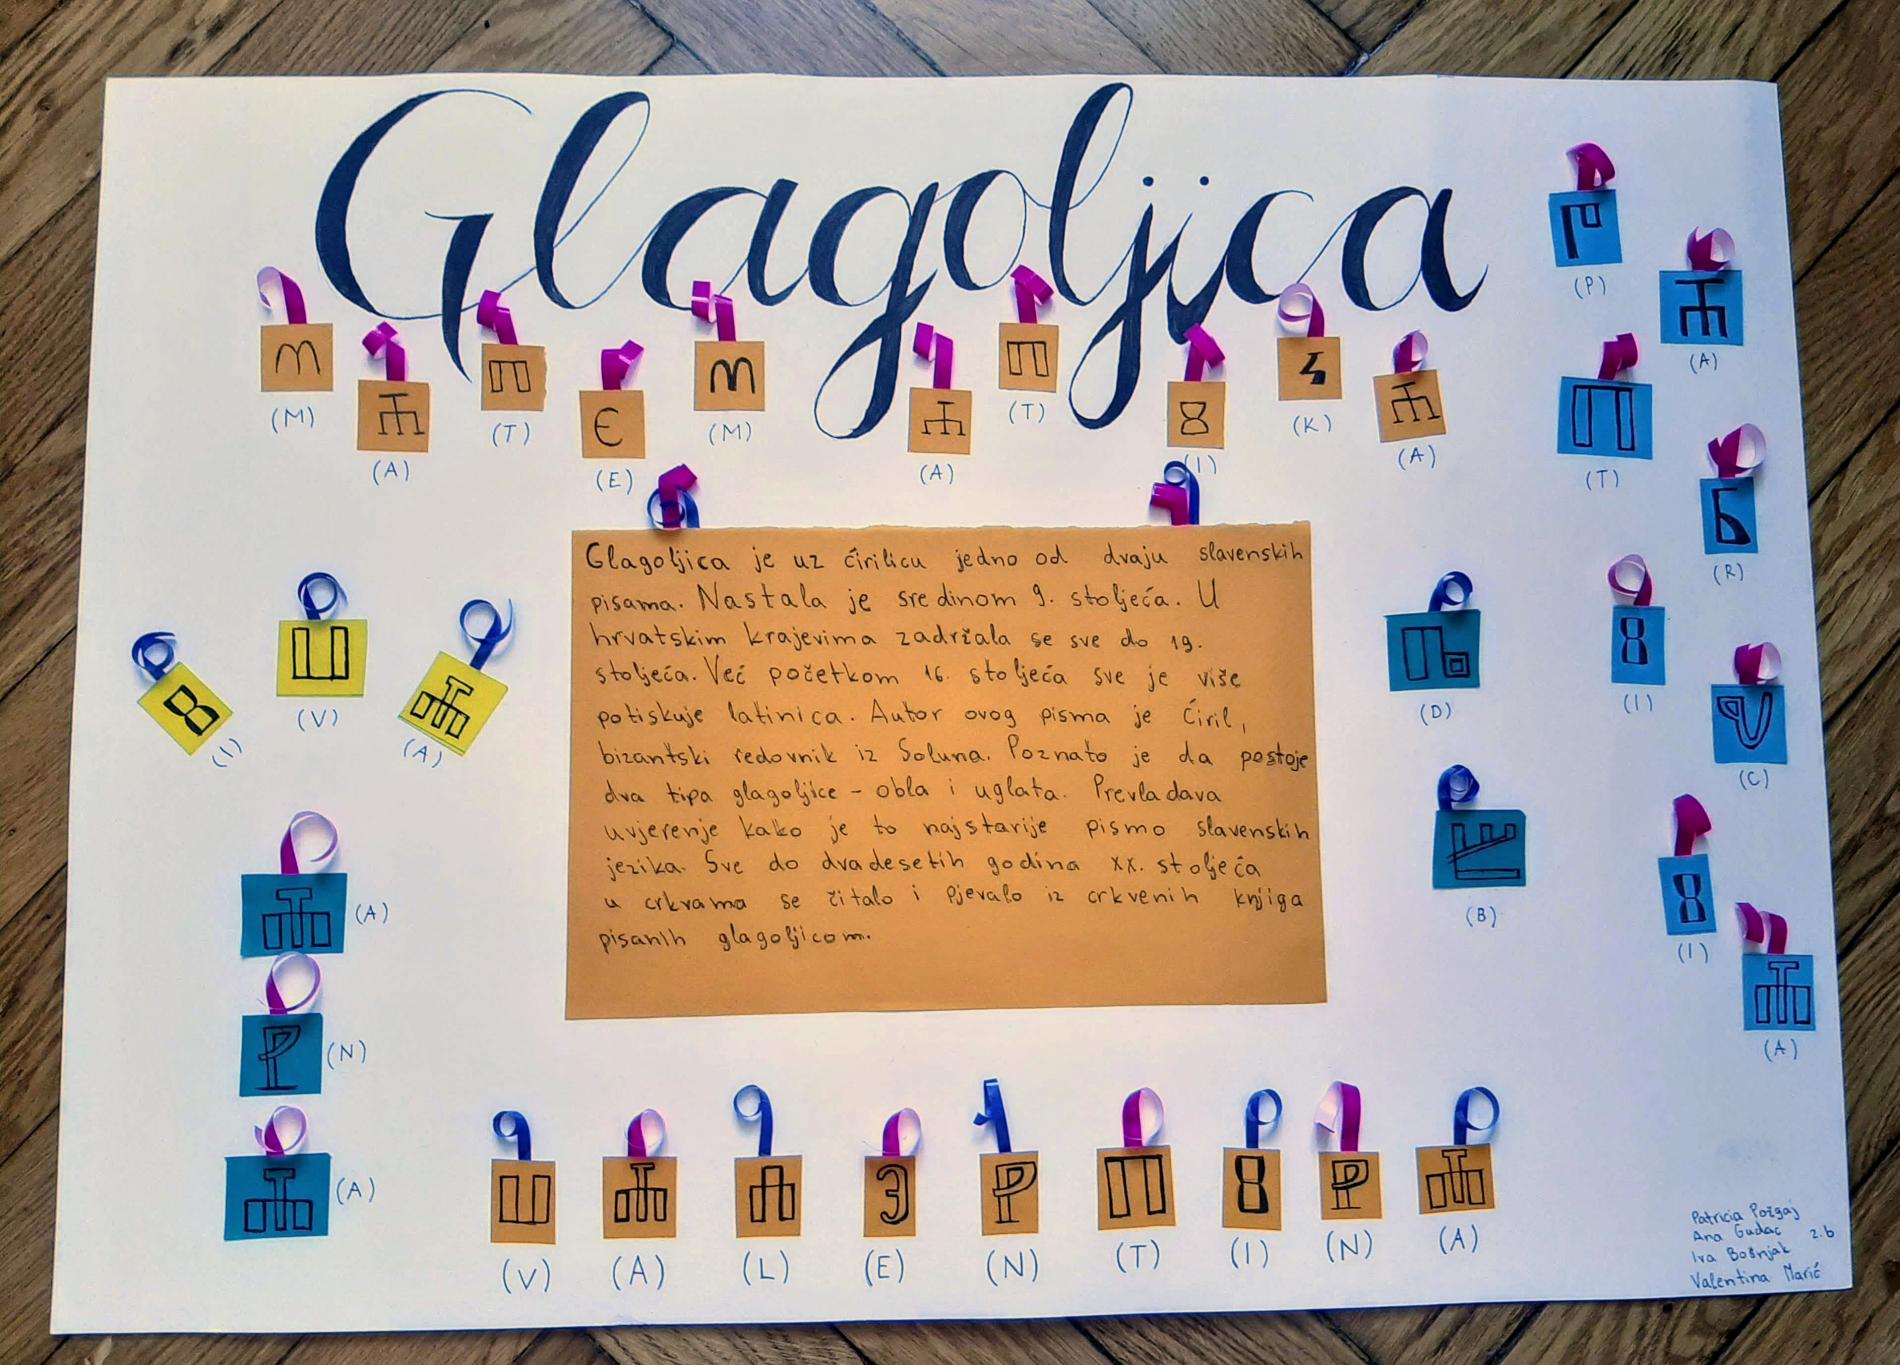 Glagoljica
(M) (A) (T) (E) (M) (A) (T) (I) (K) (A)
(P)
(A)
(T)
(R)
(I)
(C)
(I)
(A)
Glagoljica je uz ćirilicu jedno od dvaju slavenskih
pisama. Nastala je sredinom 9. stoljeća. U
hrvatskim krajevima zadržala se sve do 19.
stoljeća. Već početkom 16. stoljeća sve je više
potiskuje latinica. Autor ovog pisma je Ćiril,
bizantski redovnik iz Soluna. Poznato je da postoje
dva tipa glagoljice - obla i uglata. Prevladava
uvjerenje kako je to najstarije pismo slavenskih
jezika. Sve do dvadesetih godina XX. stoljeća
u crkvama se čitalo i pjevalo iz crkvenih knjiga
pisanih glagoljicom.
(I) (V) (A)
(D)
(B)
(A)
(N)
(A)
(V) (A) (L) (E) (N) (T) (I) (N) (A)
Patricia Požgaj
Ana Gudac 2.b
Iva Bošnjak
Valentina Marić